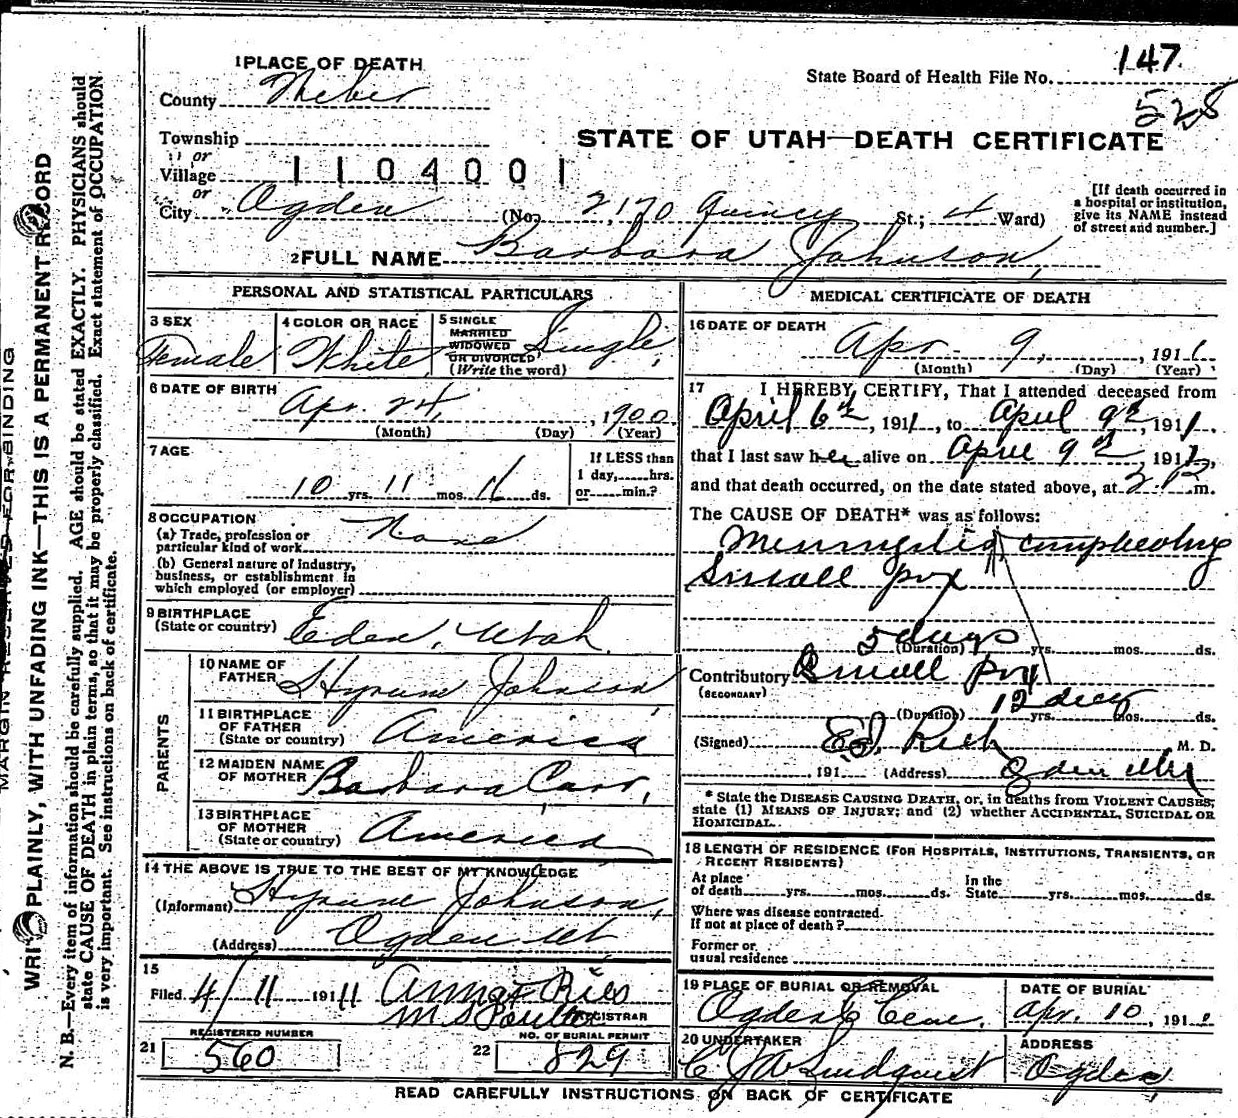 147
State Board of Health File No.
528
1 PLACE OF DEATH
County Weber
Township
STATE OF UTAH—DEATH CERTIFICATE
or
Village 1104001
or
City Ogden (No. 2170 Quincy St.; 4 Ward)
[If death occurred in
a hospital or institution,
give its NAME instead
of street and number.]
2 FULL NAME Barbara Johnson,
PERSONAL AND STATISTICAL PARTICULARS
3 SEX
Female
4 COLOR OR RACE
White
5 SINGLE
MARRIED
WIDOWED
OR DIVORCED
(Write the word)
Single,
6 DATE OF BIRTH
Apr. 24, , 1900
(Month) (Day) (Year)
7 AGE
10 yrs. 11 mos. 16 ds.
If LESS than
1 day, hrs.
or min.?
8 OCCUPATION
(a) Trade, profession or
particular kind of work
None
(b) General nature of industry,
business, or establishment in
which employed (or employer)
9 BIRTHPLACE
(State or country) Eden, Utah.
PARENTS
10 NAME OF
FATHER Hyrum Johnson,
11 BIRTHPLACE
OF FATHER
(State or country) America
12 MAIDEN NAME
OF MOTHER Barbara Carr,
13 BIRTHPLACE
OF MOTHER
(State or country) America
14 THE ABOVE IS TRUE TO THE BEST OF MY KNOWLEDGE
(Informant) Hyrum Johnson,
(Address) Ogden Ut
15
Filed 4/11 1911
REGISTRAR
REGISTERED NUMBER
21 560
NO. OF BURIAL PERMIT
22 829
MEDICAL CERTIFICATE OF DEATH
16 DATE OF DEATH
Apr 9, , 1911
(Month) (Day) (Year)
17 I HEREBY CERTIFY, That I attended deceased from
April 6th, 1911, to April 9th, 1911,
that I last saw her alive on April 9th 1911,
and that death occurred, on the date stated above, at 2 P m.
The CAUSE OF DEATH* was as follows:
Meningitis complicating
Small pox
5 days
(Duration) yrs. mos. ds.
Contributory Small pox
(SECONDARY)
12 days
(Duration) yrs. mos. ds.
(Signed) Ed. Rich M. D.
, 191 (Address) Ogden Utah
* State the DISEASE CAUSING DEATH, or, in deaths from VIOLENT CAUSES,
state (1) MEANS OF INJURY; and (2) whether ACCIDENTAL, SUICIDAL OR
HOMICIDAL.
18 LENGTH OF RESIDENCE (FOR HOSPITALS, INSTITUTIONS, TRANSIENTS, OR
RECENT RESIDENTS)
At place
of death yrs. mos. ds.
In the
State yrs. mos. ds.
Where was disease contracted.
If not at place of death?
Former or
usual residence
19 PLACE OF BURIAL OR REMOVAL
Ogden C Cem.
DATE OF BURIAL
Apr. 10, 191
20 UNDERTAKER
Lindquist
ADDRESS
Ogden,
READ CAREFULLY INSTRUCTIONS ON BACK OF CERTIFICATE
MARGIN RESERVED FOR BINDING
WRITE PLAINLY, WITH UNFADING INK—THIS IS A PERMANENT RECORD
N. B.—Every item of information should be carefully supplied. AGE should be stated EXACTLY. PHYSICIANS should
state CAUSE OF DEATH in plain terms, so that it may be properly classified. Exact statement of OCCUPATION
is very important. See instructions on back of certificate.